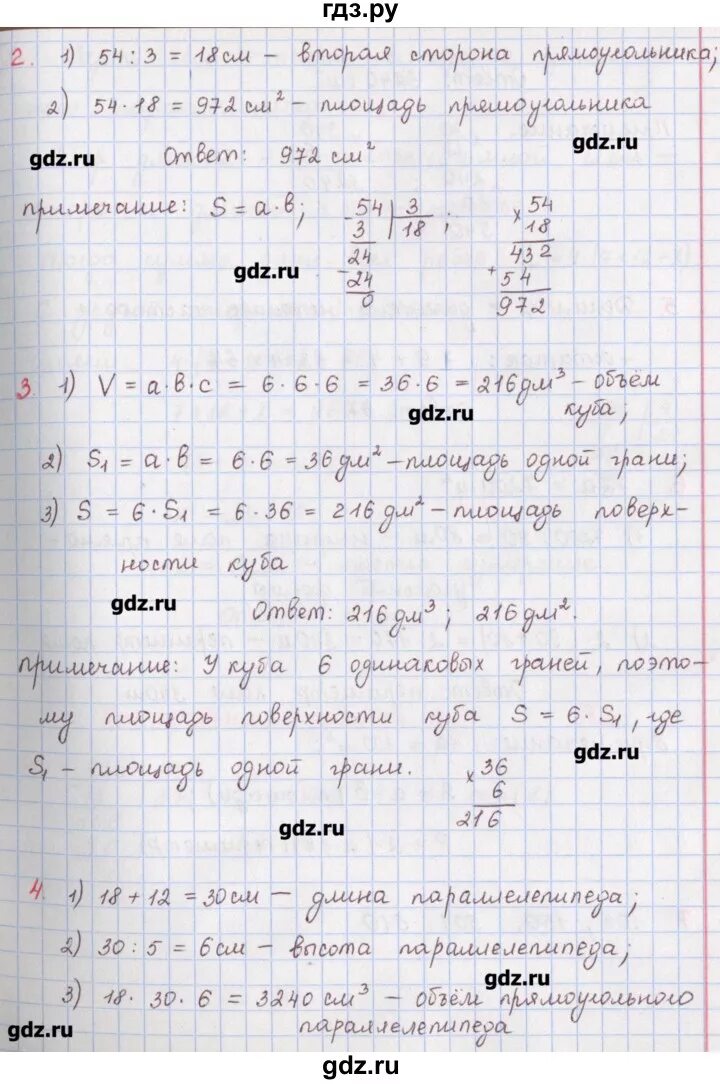 гдз.ру
2. 1) 54 : 3 = 18 см – вторая сторона прямоугольника;
2) 54 · 18 = 972 см² – площадь прямоугольника
gdz.ru
Ответ: 972 см²
gdz.ru
примечание: S = а · в;
- 54 | 3
3 | 18 ;
24
- 24
0
× 54
18
432
+ 54
972
gdz.ru
3. 1) V = а · в · с = 6 · 6 · 6 = 36 · 6 = 216 дм³ – объём
куба;
gdz.ru
2) S₁ = а · в = 6 · 6 = 36 дм² – площадь одной грани;
3) S = 6 · S₁ = 6 · 36 = 216 дм² – площадь поверх-
ности куба
gdz.ru
Ответ: 216 дм³; 216 дм².
примечание: У куба 6 одинаковых граней, поэто-
му площадь поверхности куба S = 6 · S₁, где
gdz.ru
S₁ – площадь одной грани.
× 36
6
216
gdz.ru
4. 1) 18 + 12 = 30 см – длина параллелепипеда;
2) 30 : 5 = 6 см – высота параллелепипеда;
gdz.ru
3) 18 · 30 · 6 = 3240 см³ – объём прямоугольного
параллелепипеда
gdz.ru
gdz.ru